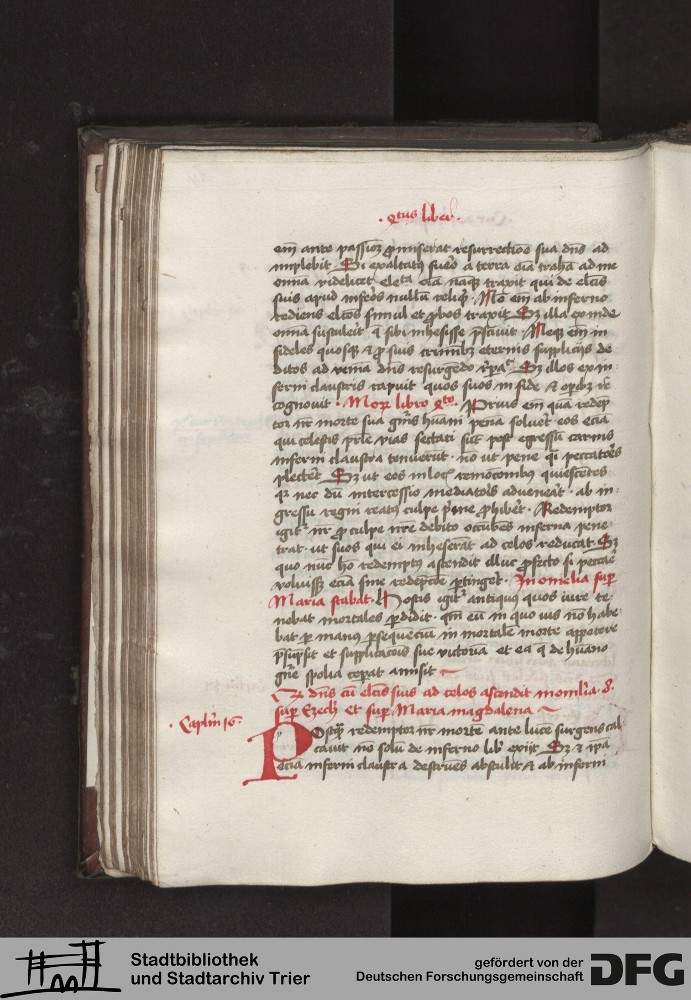 · Qtus liber ·
em̄ ante passioꝫ ꝓmiserat resurrectiōe sua dn̄s ad
implebit Si exaltatꝰ fuēo a terra oīa trahā ad me
om̄ia videlicet elc̄ta oīa nāqꝫ traxit qui de elc̄is
suis apud infēos nullū reliqͥt
rediens elc̄os simul et ꝓbos traxit Sꝫ illa exinde
om̄ia sustuleit q̄ sibi inhesisse p̄sciuit Neqꝫ em̄ in
fideles quosqꝫ ꝓ suis crimībꝫ eternis supplicijs de
ditos ad veniā dn̄s resurgēdo Sꝫ illos ex in
ferni claustris rapuit quos suos in fide & opībꝫ re
cognouit · Moꝝ libro Prius em̄ quā redēp
tor nr̄ morte sua gn̄is hūani penā solueret eos eciā
qui celestis pr̄ie vias sectati sūt post egressū carnis
inferni claustra tenuerūt · nō ut pene qͥ peccatōes
plectēt Sꝫ ut eos in locꝭ remocioribꝰ quiescētes
qꝛ nec dū intercessio mediatoīs aduenerāt · ab in
gressu regni reatꝰ culpe pͥme ꝓhibēt · Redemptor
igitͬ nr̄ ꝓ culpe nr̄e debito occūbēs inferna pene
trat · ut suos qui ei inheserāt ad celos reducat Sꝫ
quo nūc hō redemptꝰ ascendit illuc ꝓfecto si peccāe
voluissꝫ eciā sine redēpc̄oe ꝑtinget · In omelia suꝑ
Maria stabat · Hostis igitͬ antiquꝰ quos iure te
nebat mortales ꝑdidit · qm̄ eū in quo ius nō habe
bat ꝑ manꝰ ꝑsequeciū in mortalē morte appetere
p̄supsit et supplicac̄ois sue victoriā et ea q̄ de hūano
gn̄e spolia ceꝑat amisit
dn̄s cū elc̄is suis ad celos ascendit in omīlia · 8 ·
suꝑ Ezech et suꝑ Maria magdalena
· Caplm̄ 16 ·
Postqͣ redemptor nr̄ mortē ante lucē surgens cal
cauit nō solū de inferno libͤ exijt Sꝫ & ip̄a
eciā inferni claustra destruēs abstulit & ab inferni
Stadtbibliothek
und Stadtarchiv Trier
gefördert von der
Deutschen Forschungsgemeinschaft
DFG